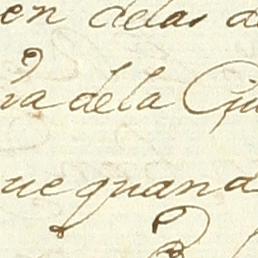 en delas d
na dela Ciu
ue quand